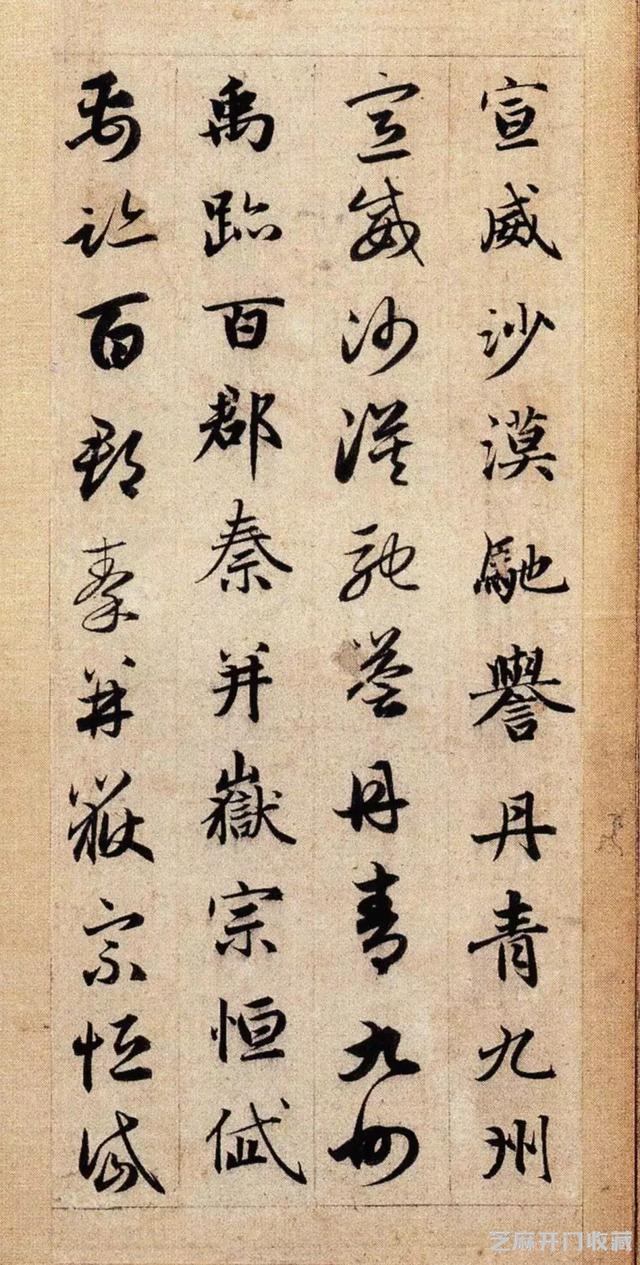 宣威沙漠馳譽丹青九州
宣威沙漠馳譽丹青九州
禹跡百郡秦并嶽宗恒岱
禹跡百郡秦并嶽宗恒岱
芝麻开门收藏